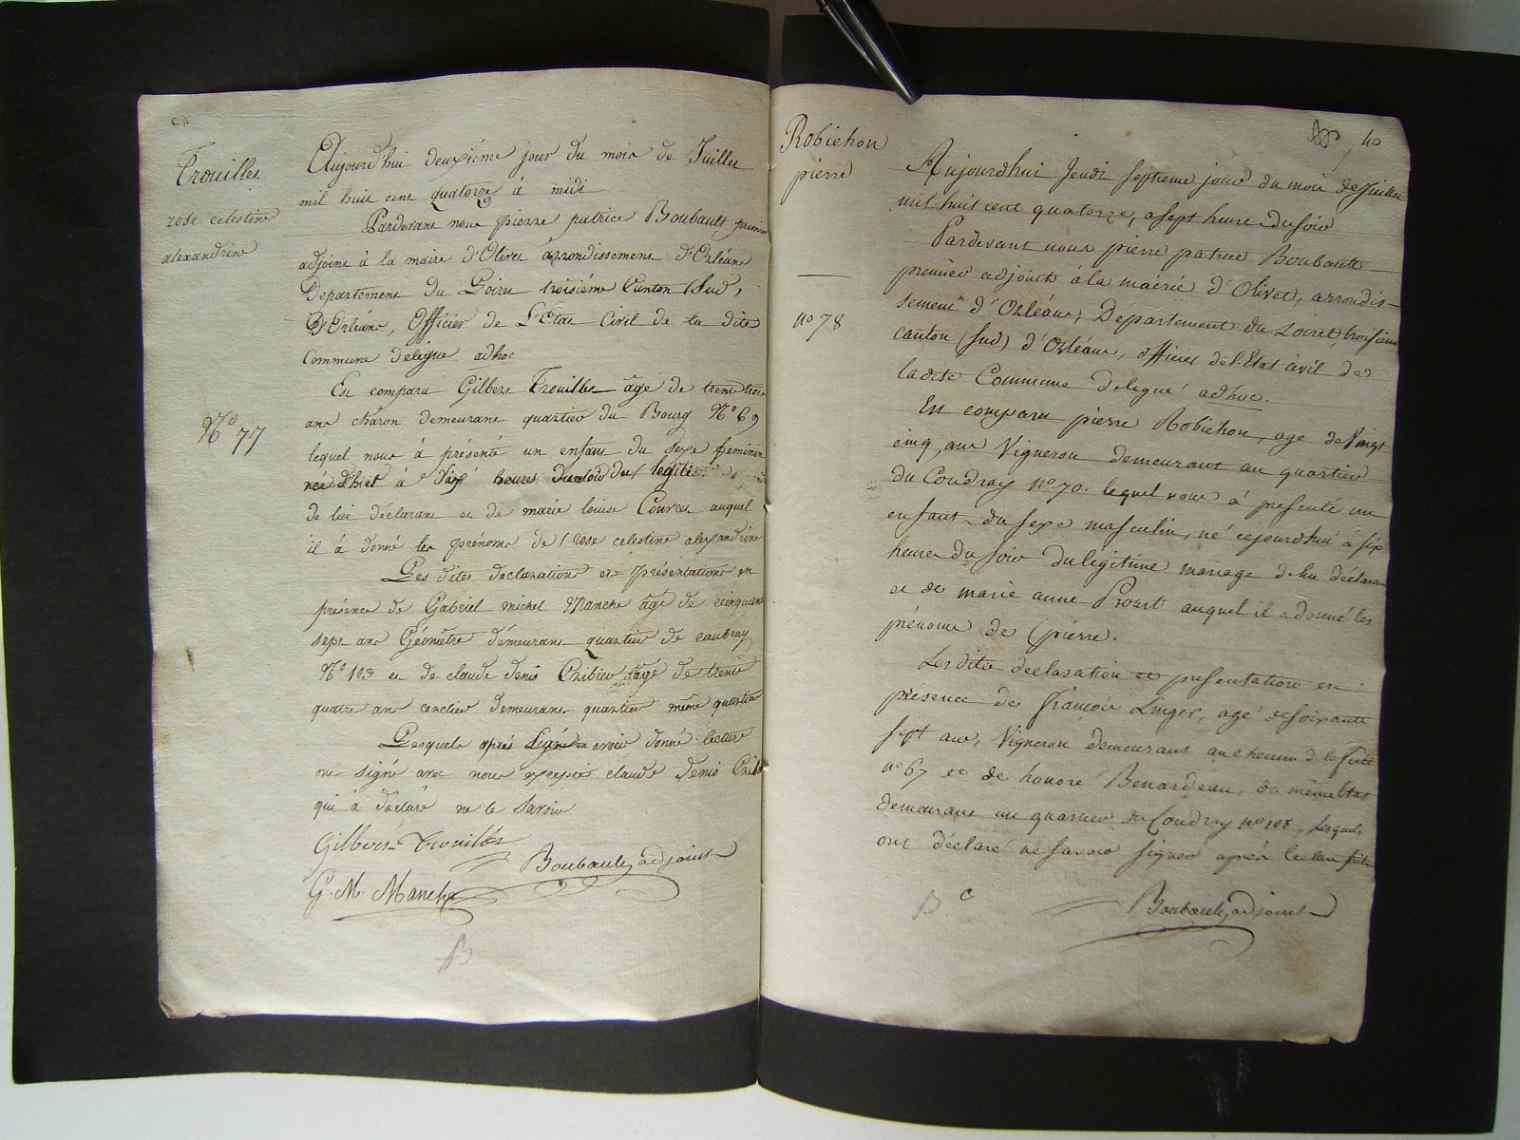 Trouillet
rose celestine
alexandrine
N.º 77
Aujourd'hui deuxième jour du mois de Juillet
mil huit cent quatorze à midi
Pardevant nous pierre patrice Boubault premier
adjoint à la mairie d'Olivet arrondissement d'Orléans
Departement du Loiret troisième Canton (Sud)
D'Orléans, Officier de L'Etat Civil de la dite
Commune délégué adhoc
Est comparu Gilbert Trouillet âgé de trente trois
ans charon demeurant quartier du Bourg N.º 69
lequel nous à présenté un enfant du sexe feminin
née d'hier à Six heures du soir du legitime
de lui déclarant et de marie louise auquel
il à donné les prénoms de rose celestine alexandrine
Les dites declarations et présentations en
présence de Gabriel michel Manche âgé de cinquante
sept ans Géomètre demeurant quartier de caubray
N.º 103 et de claude denis âgé de trente
quatre ans demeurant quartier même quartier
Lesquels après avoir donné lecture
ont signé avec nous excepté claude denis
qui à déclaré ne le Savoir
Gilbert Trouillet
Boubault adjoint
G. M. Manche
B
40
Robichon
pierre
nº 78
Aujourdhui Jeudi septieme jour du mois de Juillet
mil huit cent quatorze, a sept heure du soir
Pardevant nous pierre patrice Boubault
premier adjoint à la mairie d'Olivet, arrondis-
sement d'Orléans, Departement du Loiret, troisieme
canton (sud) d'Orléans, officier de l'Etat civil de
ladite Commune delegué adhoc.
Est comparu pierre Robichon, agé de Vingt
cinq, ans Vigneron demeurant au quartier
du Coudray nº 70. lequel nous a presenté un
enfant du sexe masculin, né cejourdhui a six
heure du soir du legitime mariage de lui déclarant
et de marie anne Proust auquel il a donné les
prénoms de (pierre).
Les dites declaration et presentation en
présence de françois Linger, agé de soixante
sept ans, Vigneron demeurant au chemin de la ferté
nº 67 et de honoré Benardeau, du même Etat
demeurant au quartier du Coudray nº 108, lesquels
ont déclaré ne savoir signer après lecture faite
B c
Boubault adjoint